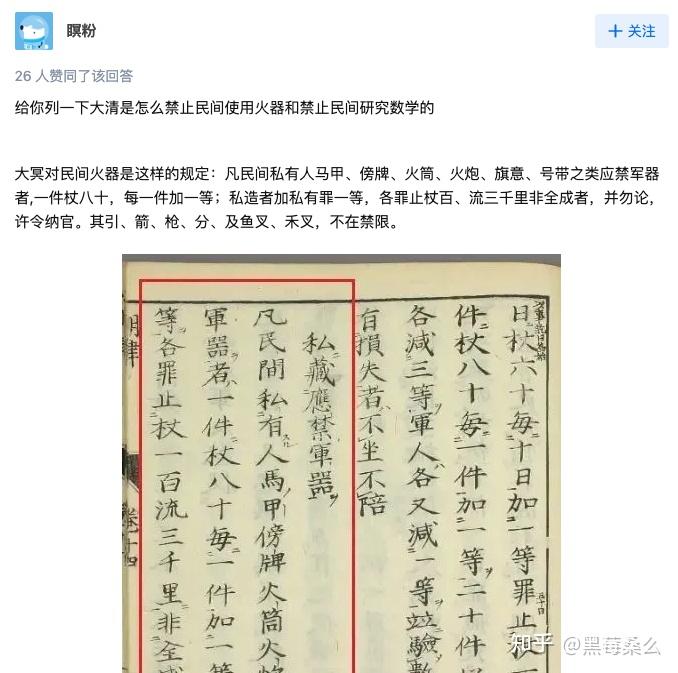 瞑粉
关注
26 人赞同了该回答
给你列一下大清是怎么禁止民间使用火器和禁止民间研究数学的
大冥对民间火器是这样的规定：凡民间私有人马甲、傍牌、火筒、火炮、旗意、号带之类应禁军器
者,一件杖八十，每一件加一等；私造者加私有罪一等，各罪止杖百、流三千里非全成者，并勿论，
许令纳官。其引、箭、枪、分、及鱼叉、禾叉，不在禁限。
日杖六十每十日加一等罪止杖
件杖八十每一件加一等二十件
各減三等軍人各又減一等竝驗數
有損失者不坐不陪
私藏應禁軍器
凡民間私有人馬甲傍牌火筒火炮
軍器者一件杖八十每一件加一等
等各罪止杖一百流三千里非全成
明律
卷十四
知乎 @黑莓桑么